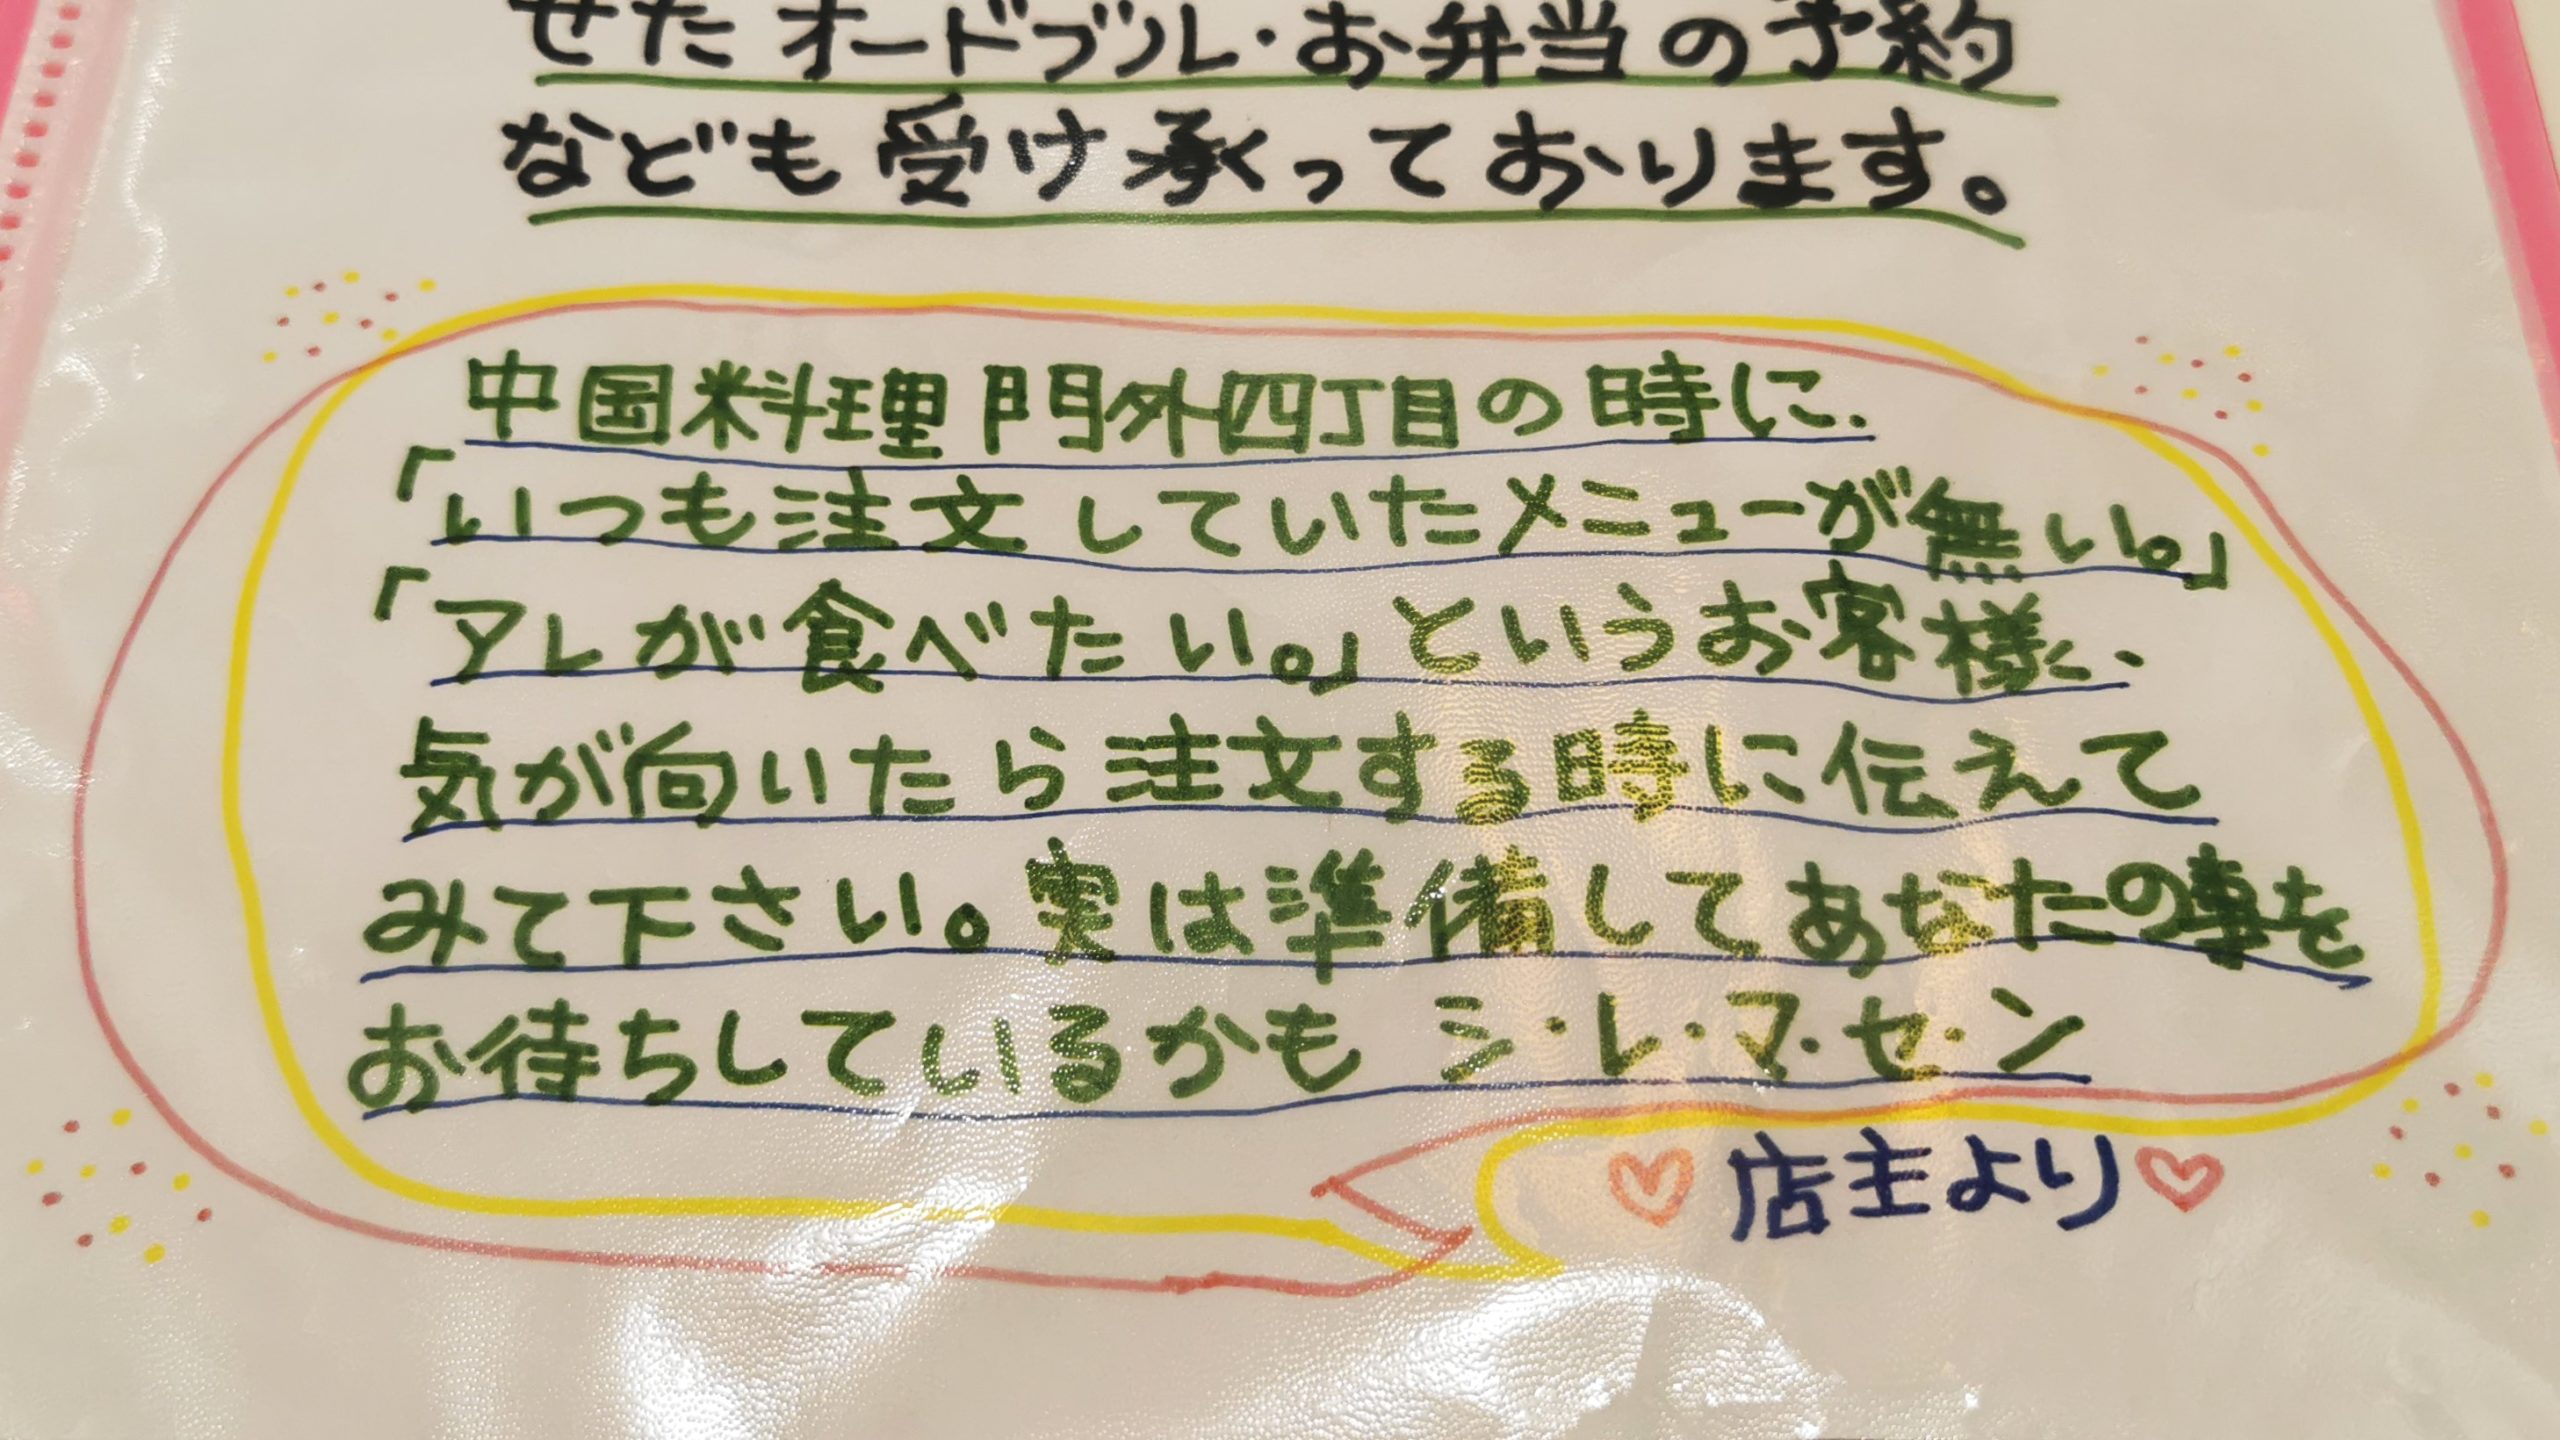 せたオードブル・お弁当の予約
なども受け承っております。
中国料理 門外四丁目の時に、
「いつも注文していたメニューが無い。」
「アレが食べたい。」というお客様に、
気が向いたら注文する時に伝えて
みて下さい。実は準備してあなたの事を
お待ちしているかも シ・レ・マ・セ・ン
♡店主より♡